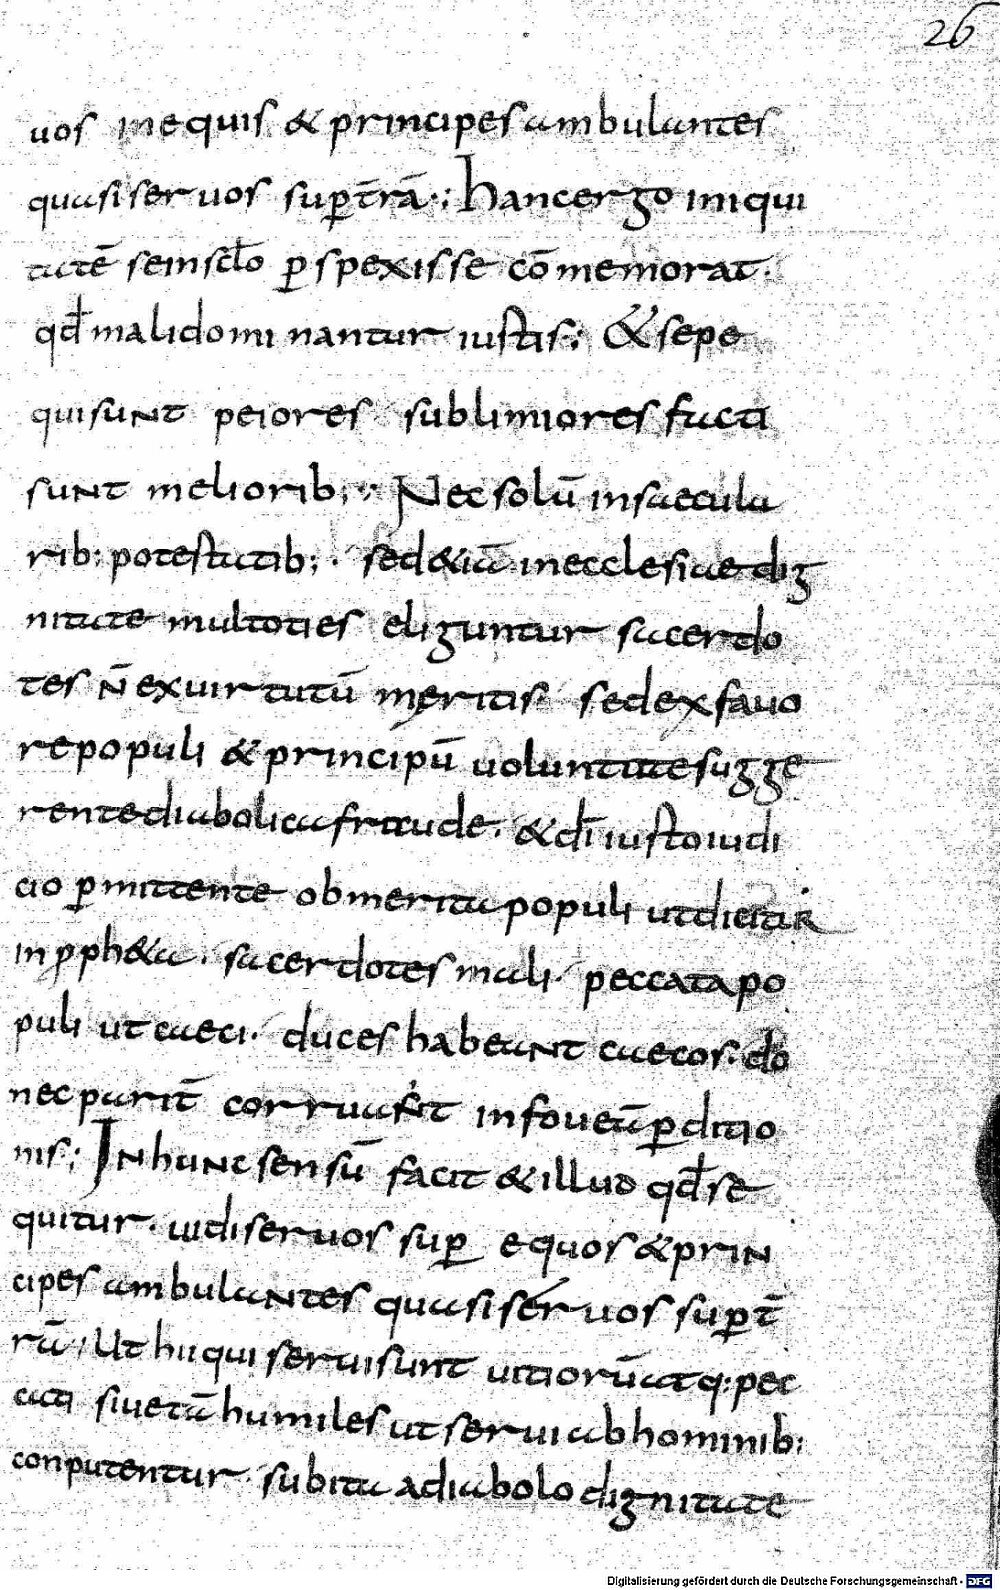 26
uos in equis & principes ambulantes
quasi seruos sup̄ t̄rā·; Hanc ergo iniqui
tatē se in sc̄lo p̄spexisse cōmemorat·
qđ mali dominantur iustis; & sepe
qui sunt peiores sublimiores facti
sunt meliorib; ·; Nec solū in saecula
rib: potestatib; · sed & iā in ecclesiae dig
nitate multoties eliguntur sacerdo
tes n̄ ex uirtutū meritis· sed ex fauo
re populi & principū uoluntate sugge
rente diabolica fraude. & dī iusto iudi
cio p̄mittente ob merita populi ut dicitur
in ꝓph&a. sacerdotes mali· peccata po
puli ut caeci· duces habeant caecos· do
nec parit̄ corruant in foueā p̄ditio
nis; In hunc sensū facit & illud qđ se
quitur. uidi seruos sup̄ equos & prin
cipes ambulantes quasi seruos sup̄ t̄
rā· Ut hii qui serui sunt uitiorū atq: pec
cati siue tā humiles ut serui ab hominib:
conputentur· subita a diabolo dignitate
Digitalisierung gefördert durch die Deutsche Forschungsgemeinschaft - DFG